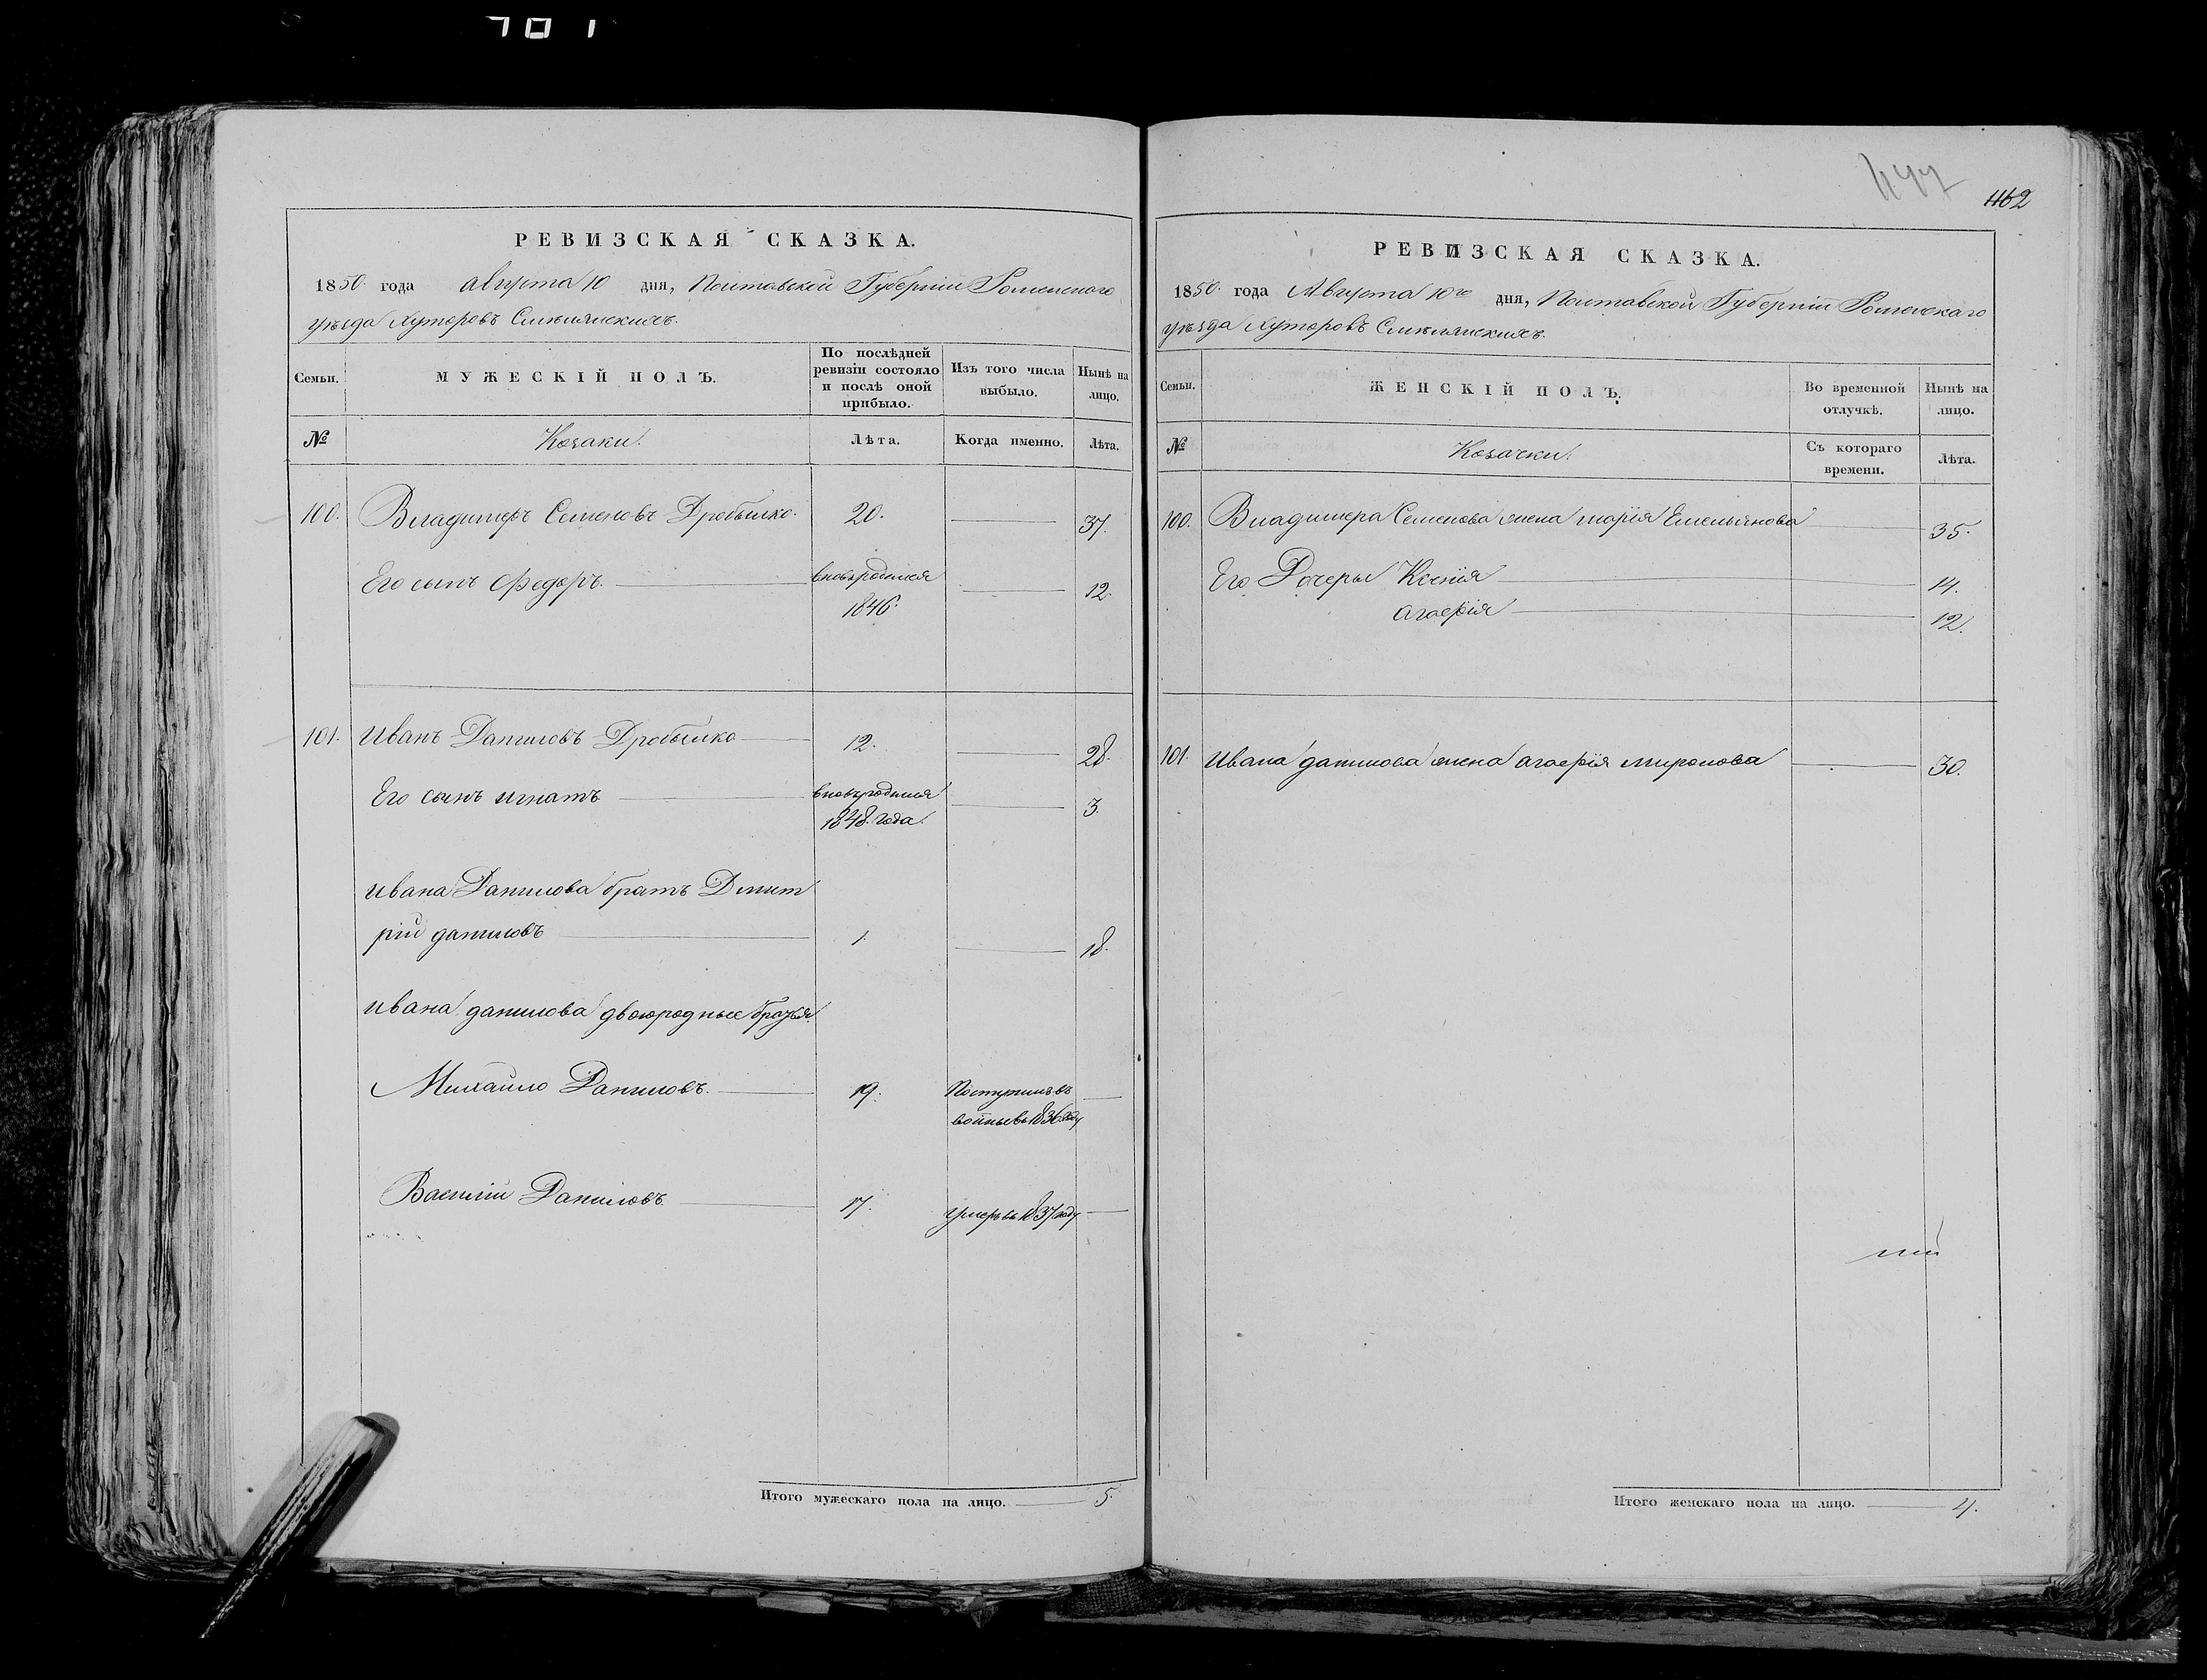 701
462
РЕВИЗСКАЯ СКАЗКА.
1850. года августа 10 дня, Полтавской Губерніи Роменскаго
уѣзда Хуторовъ Смѣлянскихъ.
Семьи.
МУЖЕСКІЙ ПОЛЪ.
По послѣдней ревизіи состояло и послѣ оной прибыло.
Изъ того числа выбыло.
Нынѣ на лицо.
№
Козаки.
Лѣта.
Когда именно.
Лѣта.
100. Владимеръ Семеновъ Дробышко. 20. 37.
Его сынъ Федоръ. вновьродился 12.
1846.
101. Иванъ Даниловъ Дробышко 12. 28.
Его сынъ игнатъ вновьродился 3.
1848. года.
ивана Данилова братъ Дмит
рій даниловъ 1. 18.
ивана данилова двоюродные братья.
Михайло Даниловъ. 19. Поступилъ въ
1836 году
Василій Даниловъ. 17. умеръ въ 1837 году
Итого мужескаго пола на лицо. 5.
РЕВИЗСКАЯ СКАЗКА.
1850. года Августа 10го дня, Полтавской Губерніи Роменскаго
уѣзда Хуторовъ Смѣлянскихъ.
Семьи.
ЖЕНСКІЙ ПОЛЪ.
Во временной отлучкѣ.
Нынѣ на лицо.
№
Козачки.
Съ котораго времени.
Лѣта.
100. Владимера Семенова жена марія Емельянова 35.
Его Дочеры Ксенія 14.
агафія 12.
101. Ивана данилова жена агафія миронова 30.
Итого женскаго пола на лицо. 4.